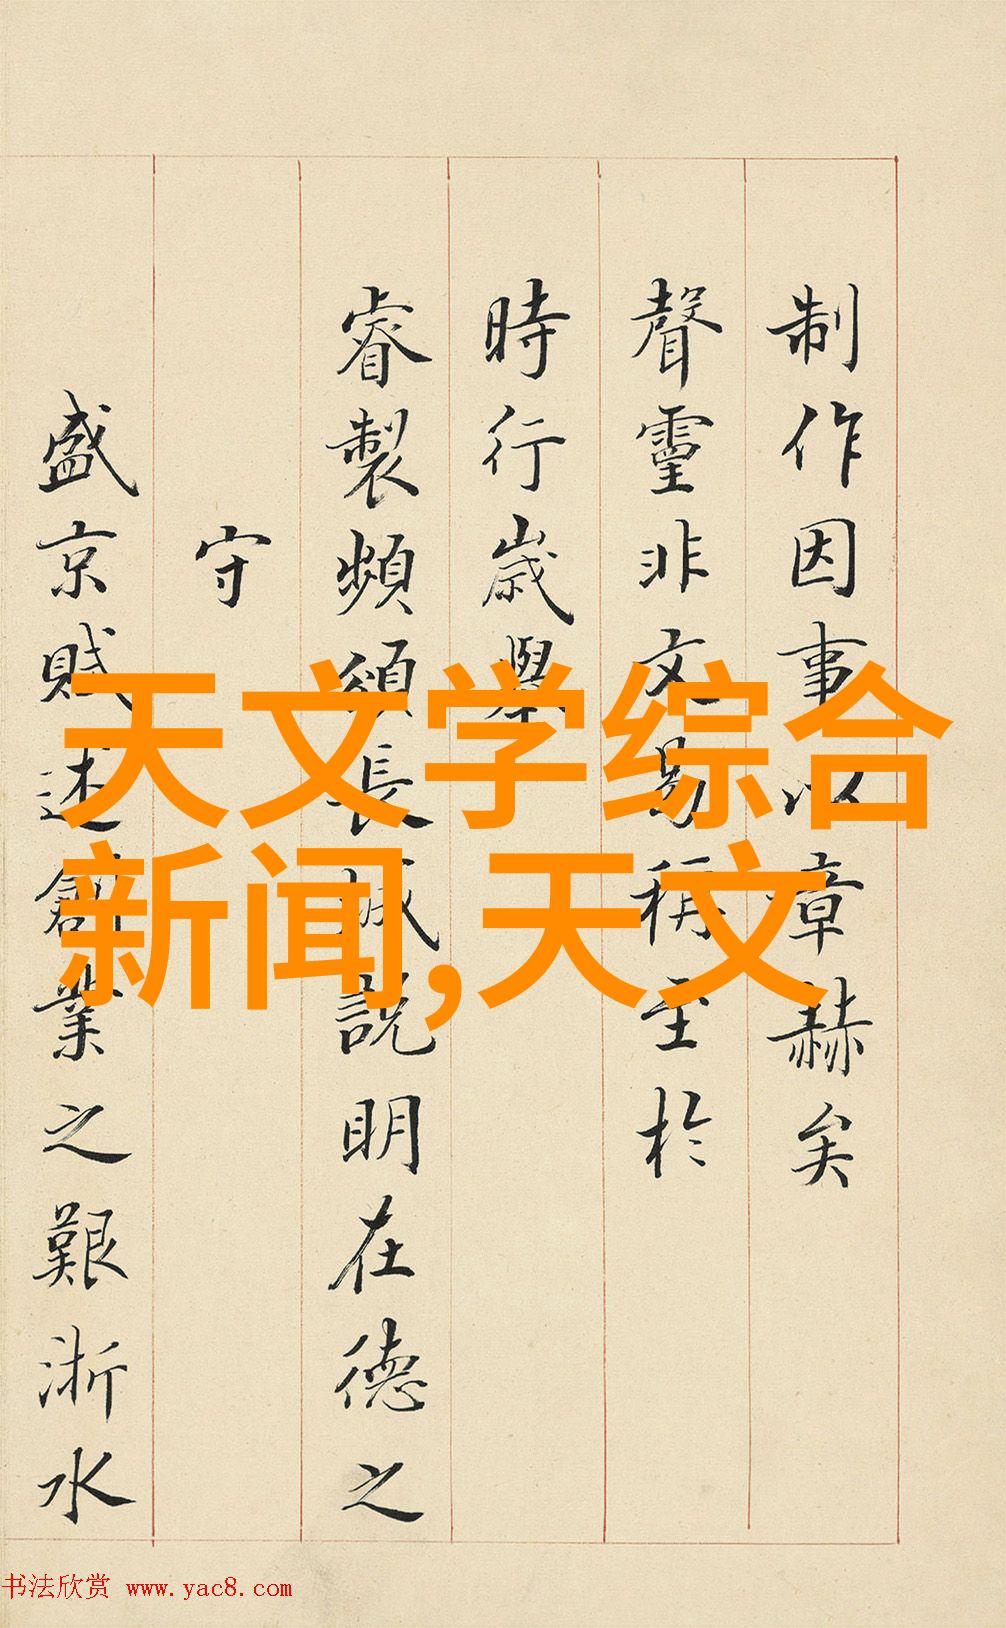 制作因事以章赫矣
聲靈非文曷稱至於
時行歲舉
睿製頻頒長城説明在德之
守
盛京賦述創業之艱浙水
天文学综合
新闻,天文
书法欣赏 www.yac8.com